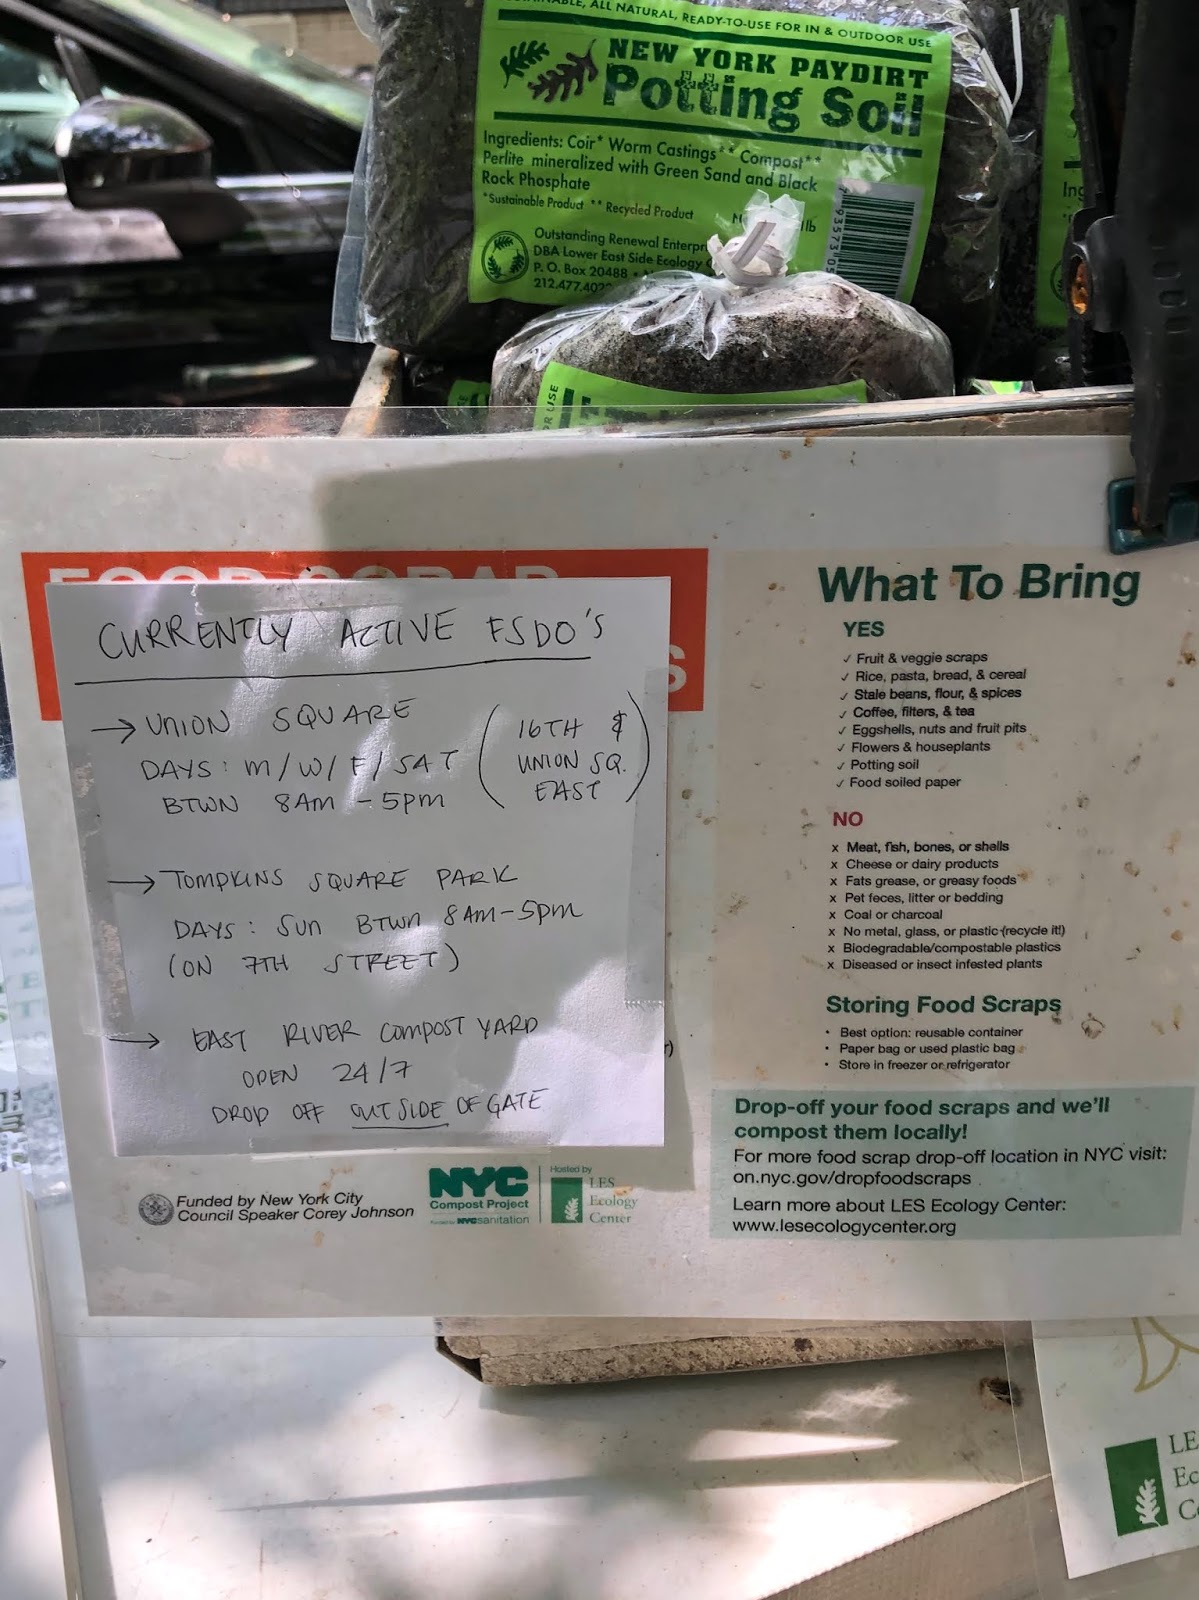 ALL NATURAL, READY-TO-USE FOR IN & OUTDOOR USE
NEW YORK PAYDIRT
Potting Soil
Ingredients: Coir* Worm Castings** Compost**
Perlite mineralized with Green Sand and Black
Rock Phosphate
*Sustainable Product ** Recycled Product
lb
Outstanding Renewal
DBA Lower East Side Ecology
P. O. Box 20488
212.477.402
USE
FOOD SCRAP
S
CURRENTLY ACTIVE FSDO'S
→ UNION SQUARE
DAYS: M/W/F/SAT
BTWN 8AM - 5PM
(16TH &
UNION SQ.
EAST)
→ TOMPKINS SQUARE PARK
DAYS: SUN BTWN 8AM-5PM
(ON 7TH STREET)
→ EAST RIVER COMPOST YARD
OPEN 24/7
DROP OFF OUTSIDE OF GATE
Funded by New York City
Council Speaker Corey Johnson
NYC
Compost Project
Funded by NYC sanitation
Hosted by
LES
Ecology
Center
What To Bring
YES
✓ Fruit & veggie scraps
✓ Rice, pasta, bread, & cereal
✓ Stale beans, flour, & spices
✓ Coffee, filters, & tea
✓ Eggshells, nuts and fruit pits
✓ Flowers & houseplants
✓ Potting soil
✓ Food soiled paper
NO
x Meat, fish, bones, or shells
x Cheese or dairy products
x Fats grease, or greasy foods
x Pet feces, litter or bedding
x Coal or charcoal
x No metal, glass, or plastic (recycle it!)
x Biodegradable/compostable plastics
x Diseased or insect infested plants
Storing Food Scraps
• Best option: reusable container
• Paper bag or used plastic bag
• Store in freezer or refrigerator
Drop-off your food scraps and we'll
compost them locally!
For more food scrap drop-off location in NYC visit:
on.nyc.gov/dropfoodscraps
Learn more about LES Ecology Center:
www.lesecologycenter.org
LES
Ec
Ce